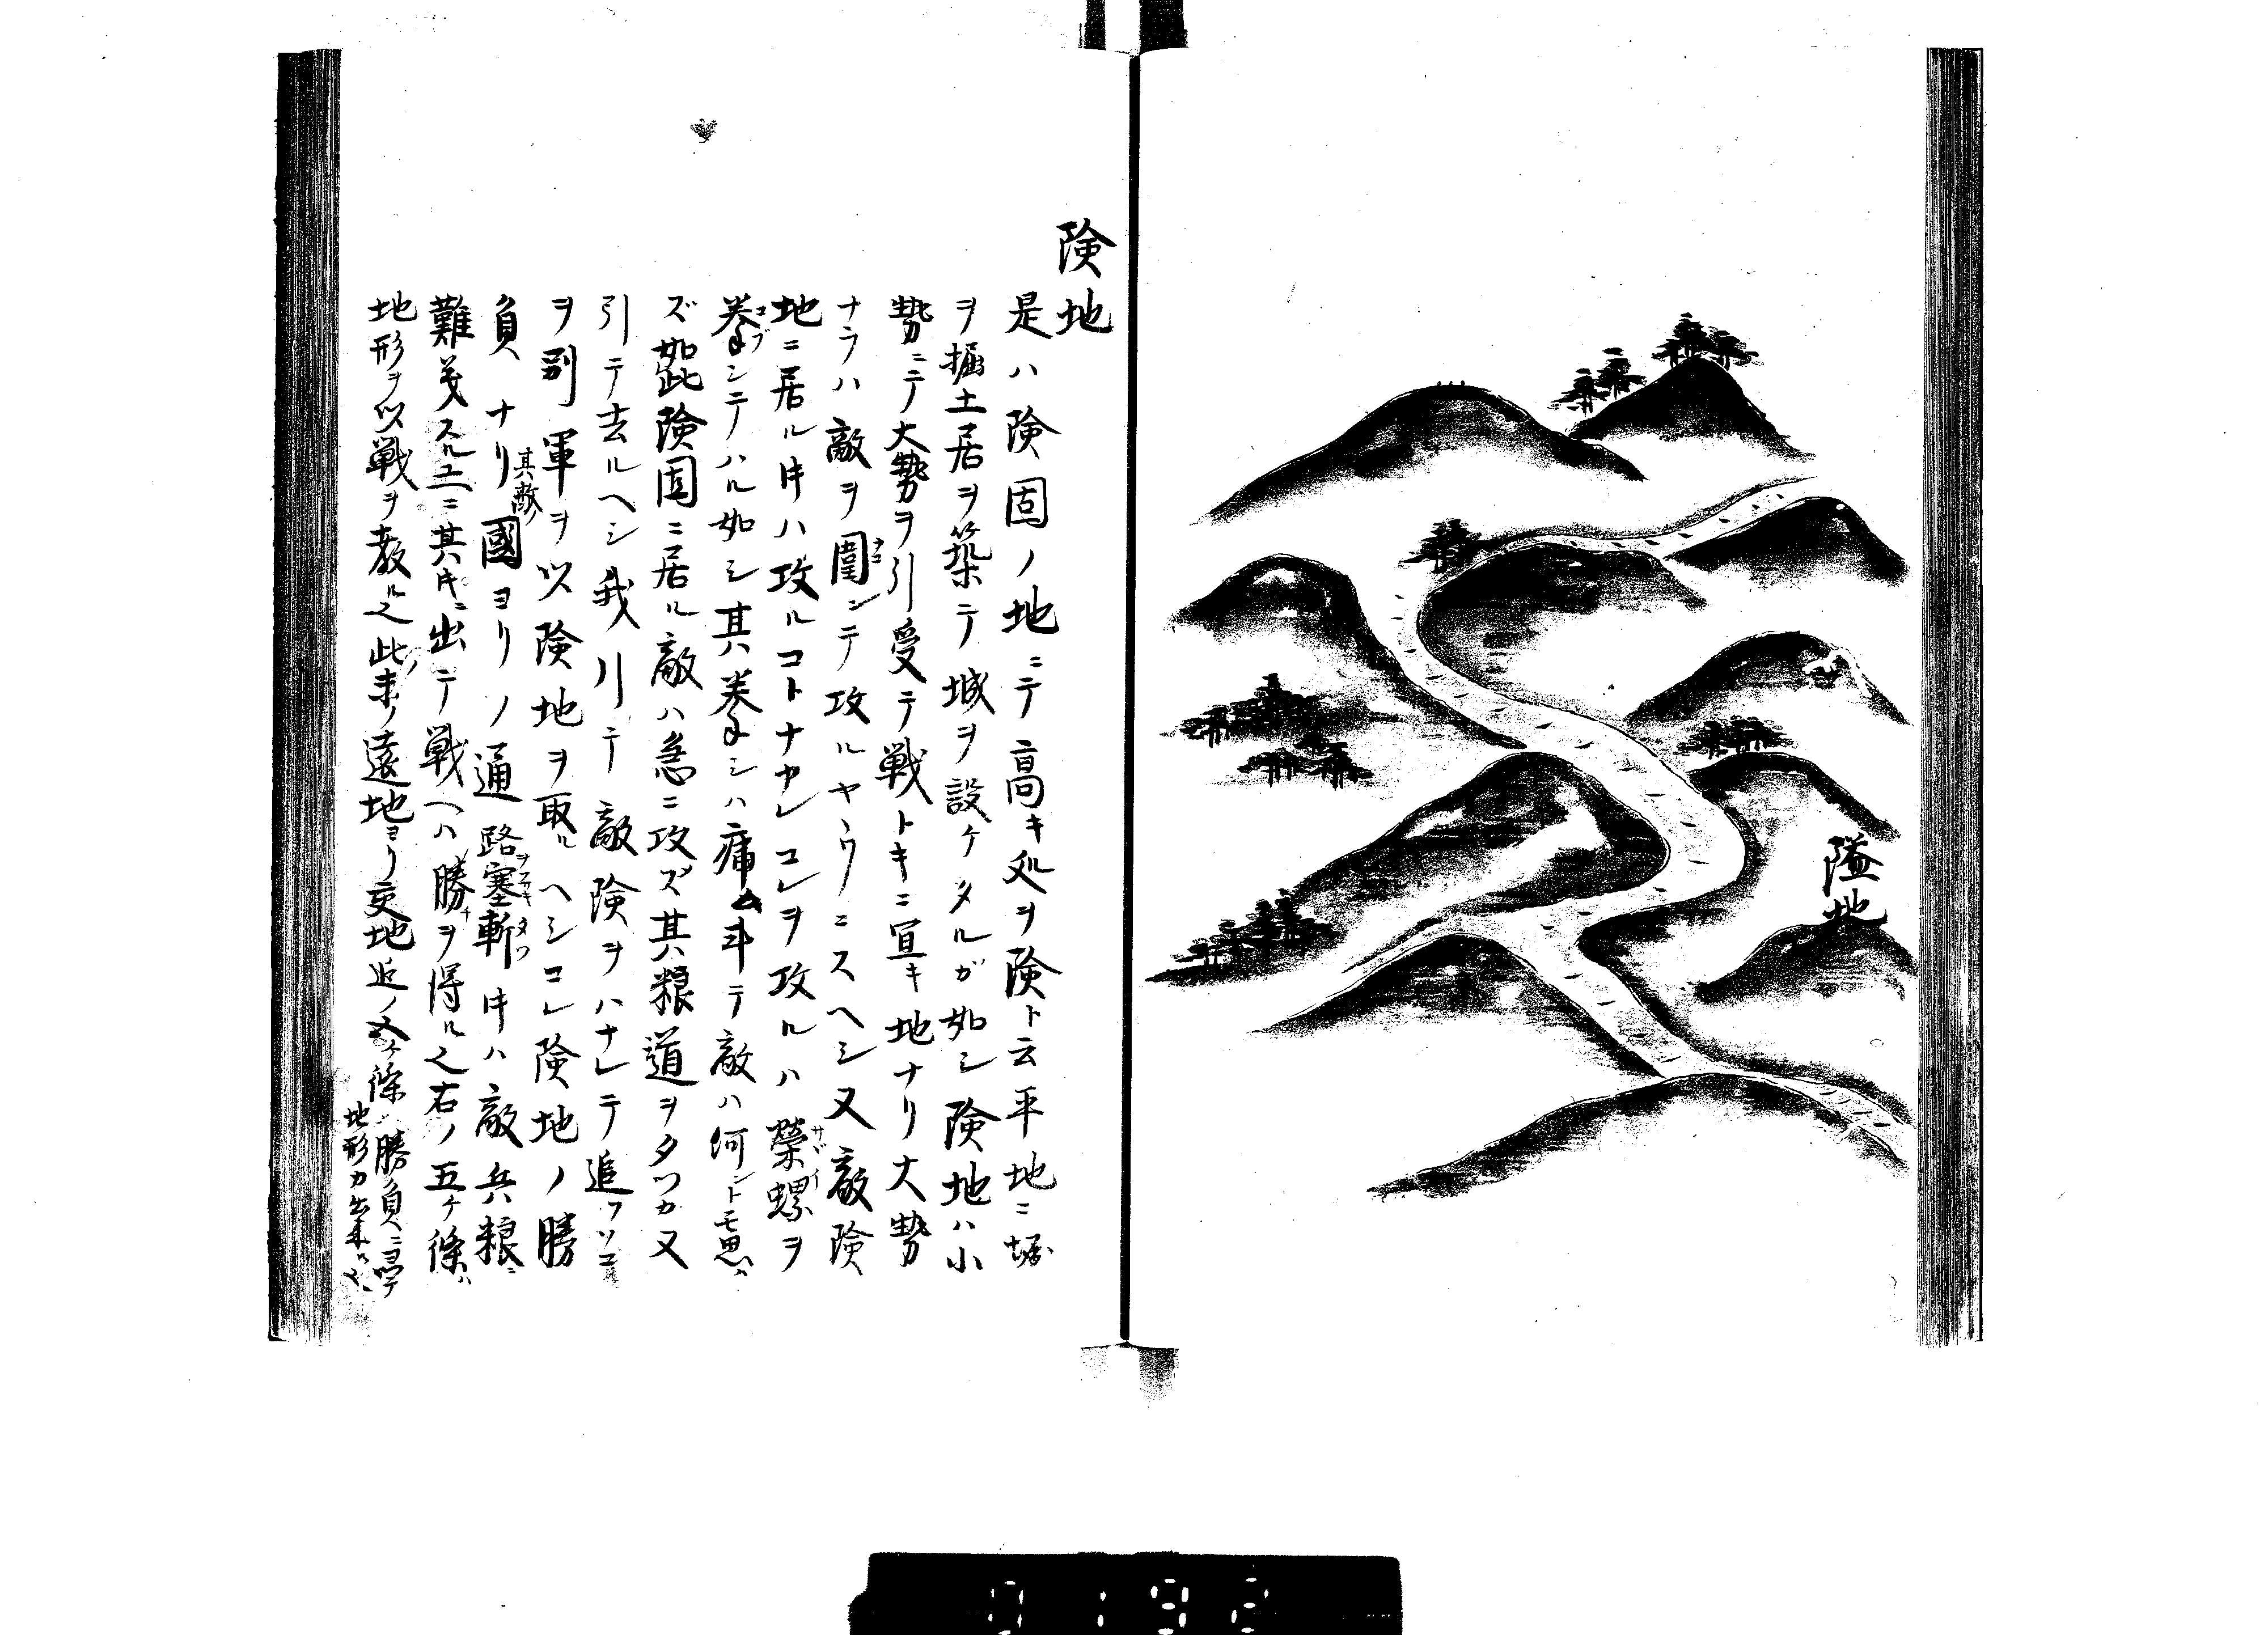 隘地
険地
是ハ険固ノ地ニテ高キ処ヲ険ト云平地ニ堀
ヲ掘土居ヲ築テ城ヲ設ケタルガ如シ険地ハ小
勢ニテ大勢ヲ引受テ戦トキニ宜キ地ナリ大勢
ナラハ敵ヲ圍ンテ攻ルヤウニスヘシ又敵険
地ニ居ル时ハ攻ルコトナカレコレヲ攻ルハ榮螺ヲ
拳シテハル如シ其拳シハ痛ム斗テ敵ハ何ントモ思ハ
ズ如此険固ニ居ル敵ハ急ニ攻ズ其粮道ヲタツカ又
引テ去ルヘシ我引テ敵険ヲハナレテ追フソコ
ヲ別軍ヲ以険地ヲ取ルヘシコレ険地ノ勝
負ナリ其敵ノ國ヨリノ通路塞斬时ハ敵兵粮ニ
難义スル故ニ其时ニ出テ戦ヘハ勝ヲ得ル之右ノ五ケ條ハ
地形ヲ以戦ヲ教ル之此末ノ遠地ヨリ交地迄ノ五ケ條ハ勝負ニヨツテ
地形カ出来ル之